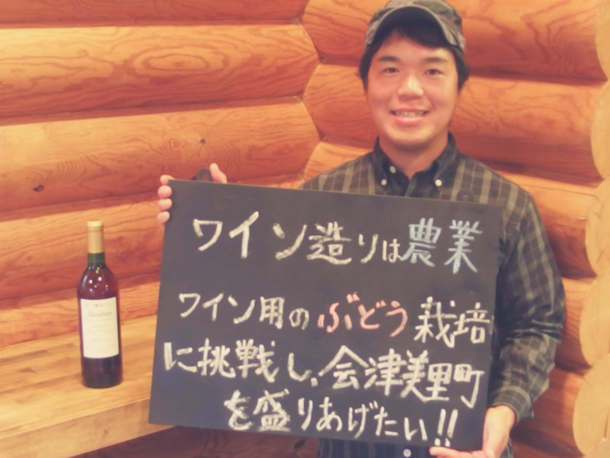 ワイン造りは農業
ワイン用のぶどう栽培
に挑戦し、会津美里町
を盛りあげたい!!